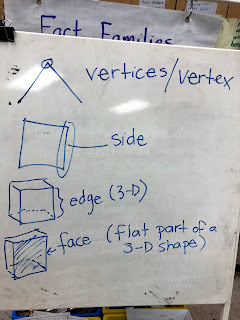 Fact Families
vertices/vertex
side
edge (3-D)
face (flat part of a
3-D shape)